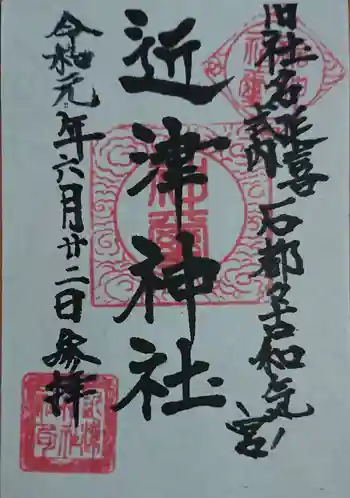 旧社名延喜式内石都々古和気宮
近津神社
令和元年六月廿二日参拝